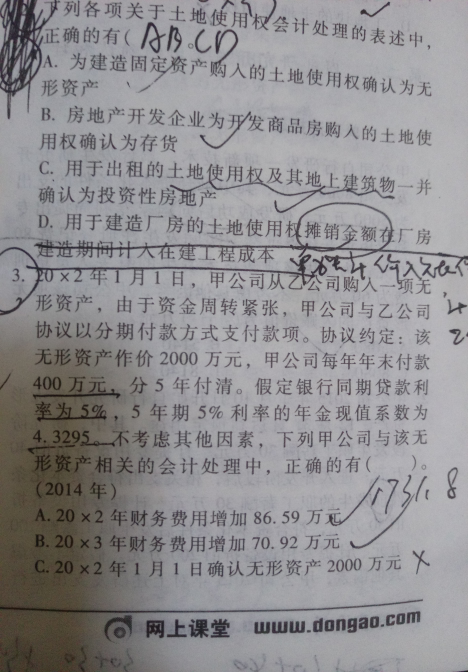 下列各项关于土地使用权会计处理的表述中,
正确的有( ABCD
A. 为建造固定资产购入的土地使用权确认为无
形资产
B. 房地产开发企业为开发商品房购入的土地使
用权确认为存货
C. 用于出租的土地使用权及其地上建筑物一并
确认为投资性房地产
D. 用于建造厂房的土地使用权摊销金额在厂房
建造期间计入在建工程成本
3. 20×2年1月1日,甲公司从乙公司购入一项无
形资产,由于资金周转紧张,甲公司与乙公司
协议以分期付款方式支付款项。协议约定:该
无形资产作价2000万元,甲公司每年年末付款
400万元,分5年付清。假定银行同期贷款利
率为5%,5年期5%利率的年金现值系数为
4.3295。不考虑其他因素,下列甲公司与该无
形资产相关的会计处理中,正确的有( )。
(2014年)
1731.8
A. 20×2年财务费用增加86.59万元
B. 20×3年财务费用增加70.92万元
C. 20×2年1月1日确认无形资产2000万元
网上课堂 www.dongao.com